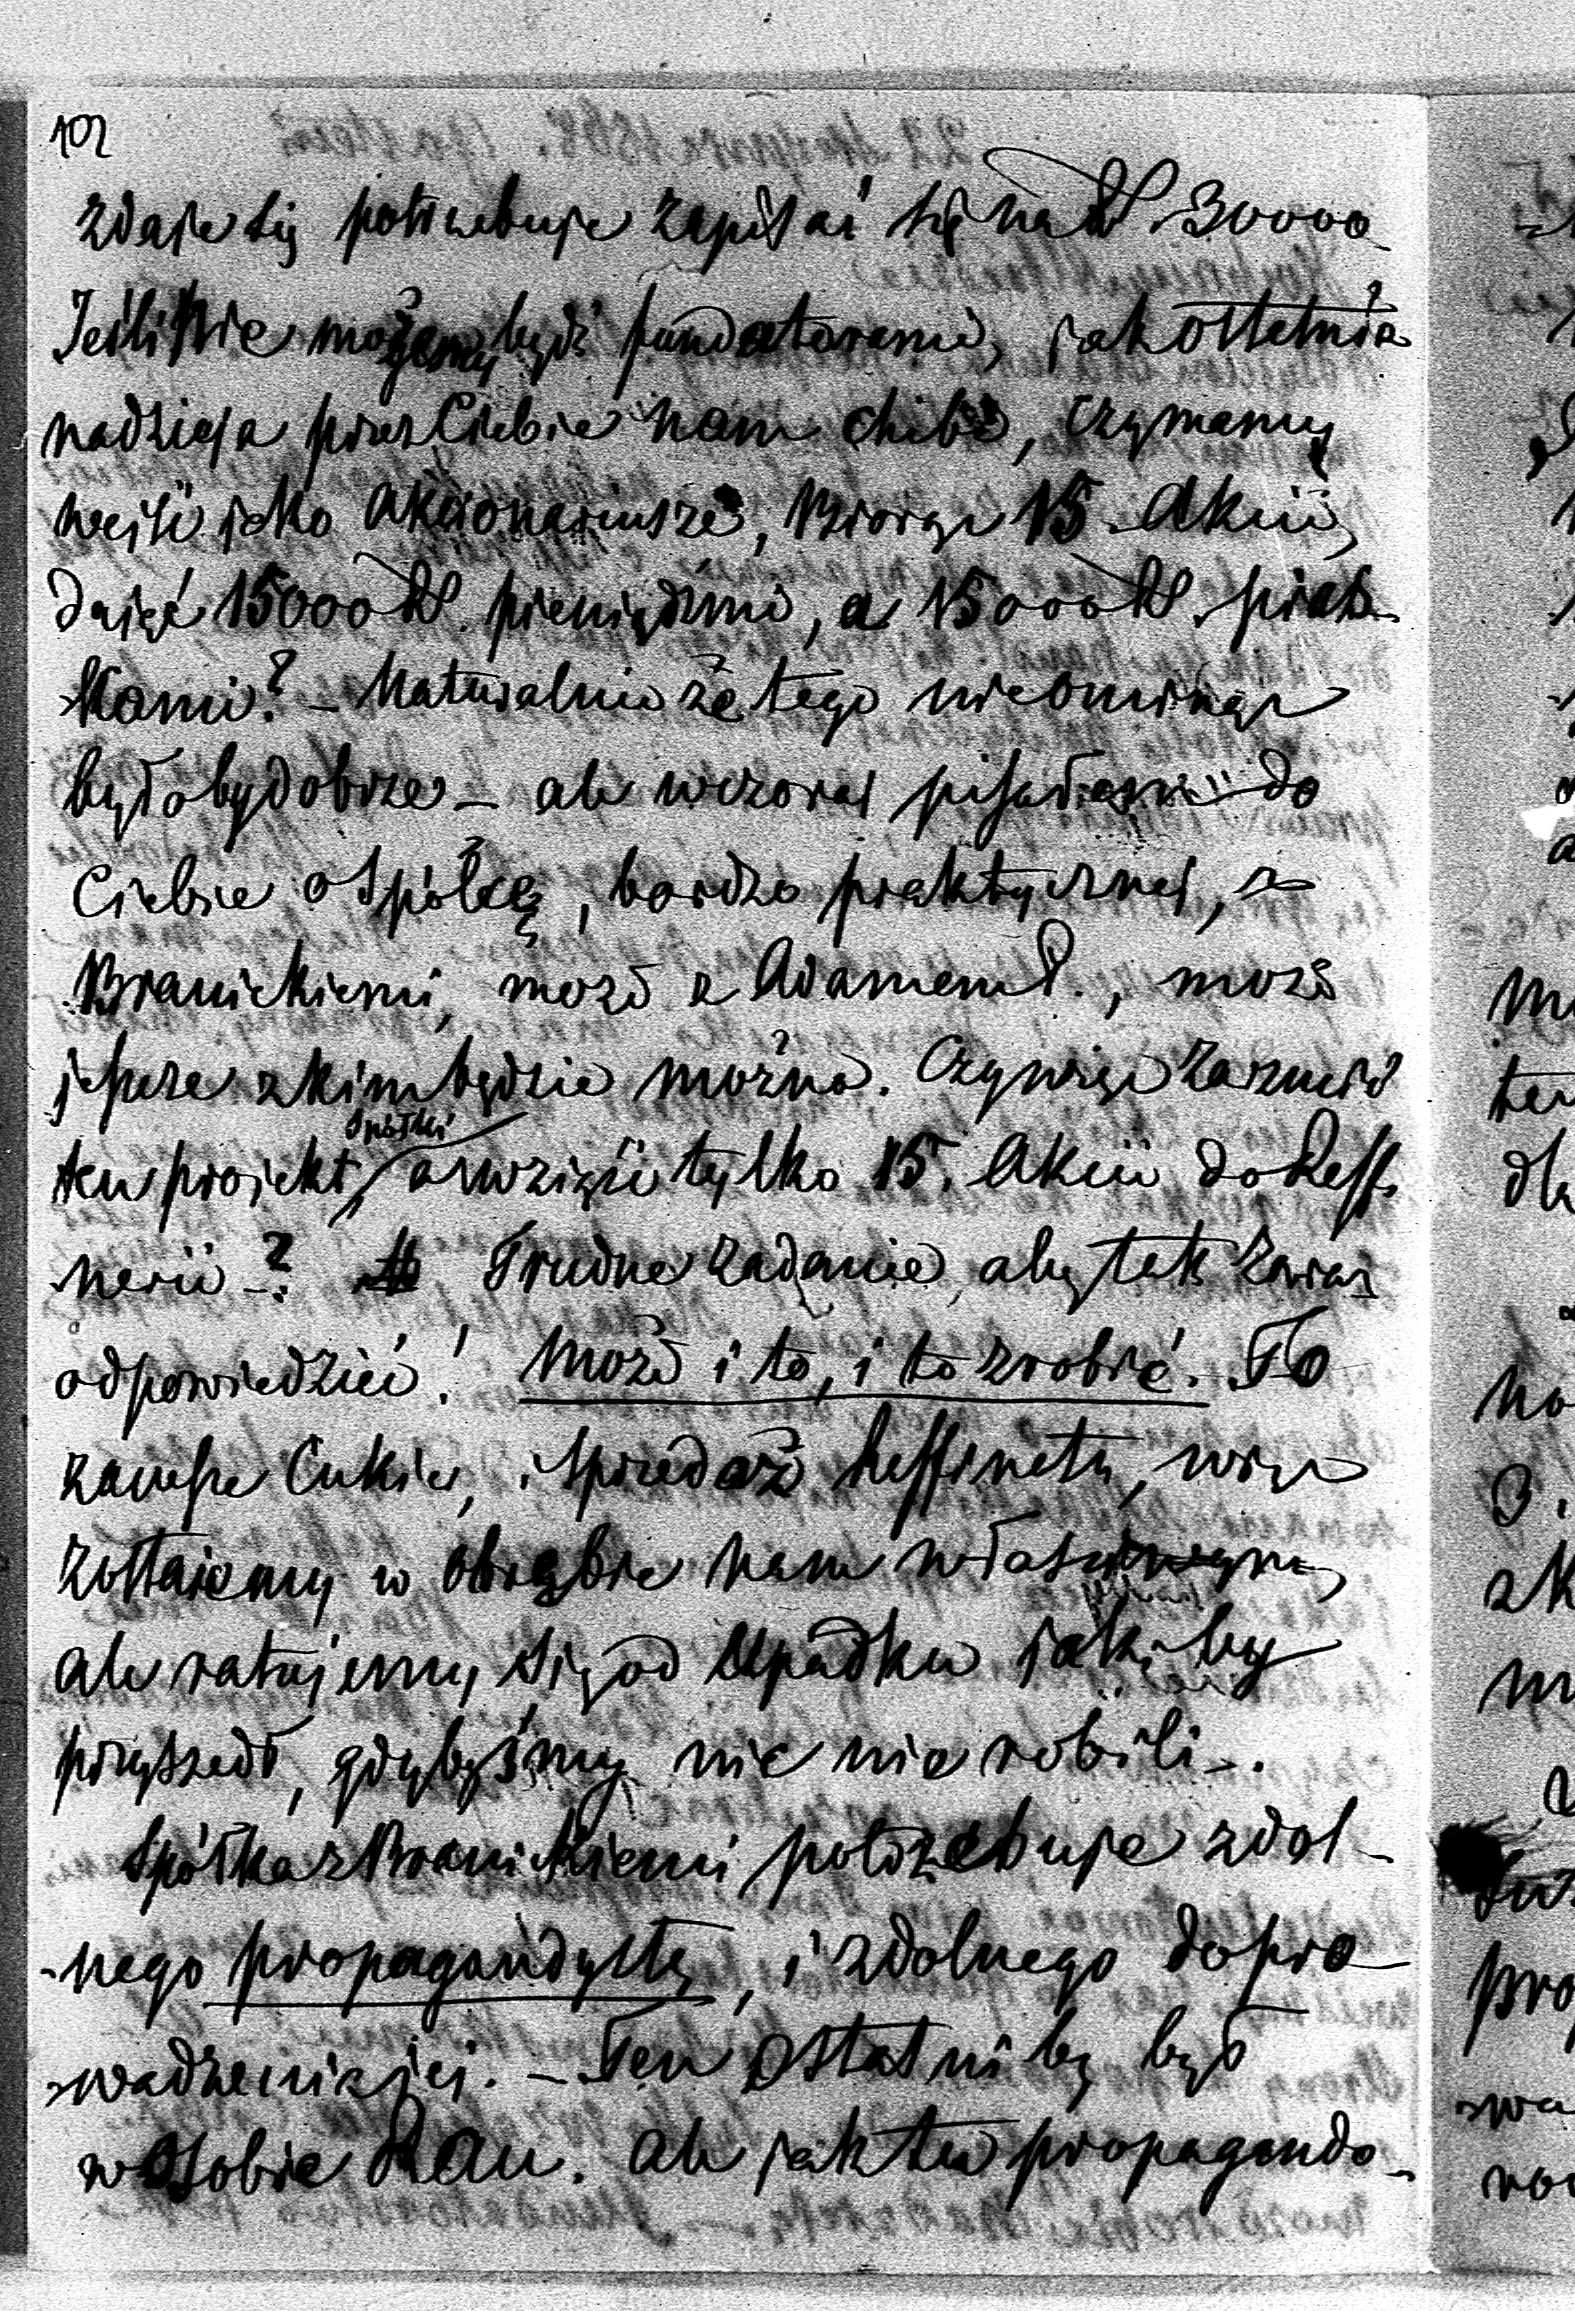 102
zdaje się potrzebuje zapisać się na 30000
Jeśli nie możemy bydź fundatorami, jak ostatnia
nadzieja przez Ciebie nam chibi, czy mamy
wejść jako akcionariusze, biorąc 15 Akcii,
dając 15000 pieniędzmi, a 15000 pias-
kami? – Naturalnie że tego nie ominąć
byłoby dobrze – ale wczoraj pisałem do
Ciebie o Spółcę, bardzo praktycznej, z
Branickiemi, może z Adamem P., może
jeszcze z kim będzie można. Czy więc zarzucić
ten projekt Spółki, a wziąść tylko 15. Akcii do Reff-
nerii –? Trudne zadanie, aby tak zaraz
odpowiedzieć! Może i to, i to zrobić. To
zawsze Cukier, i sprzedaż Reffinetu, więc
zostaiemy w obrębie nam właściwym,
ale ratujemy się od upadku iaki by
przyszedł, gdybyśmy nic nie robili –.
Spółka z Branickiemi potrzebuje zdol-
-nego propagandystę, i zdolnego dopro-
-wadzenia jej. – Ten ostatni by był
w osobie Rau. Ale jak tu propagando-